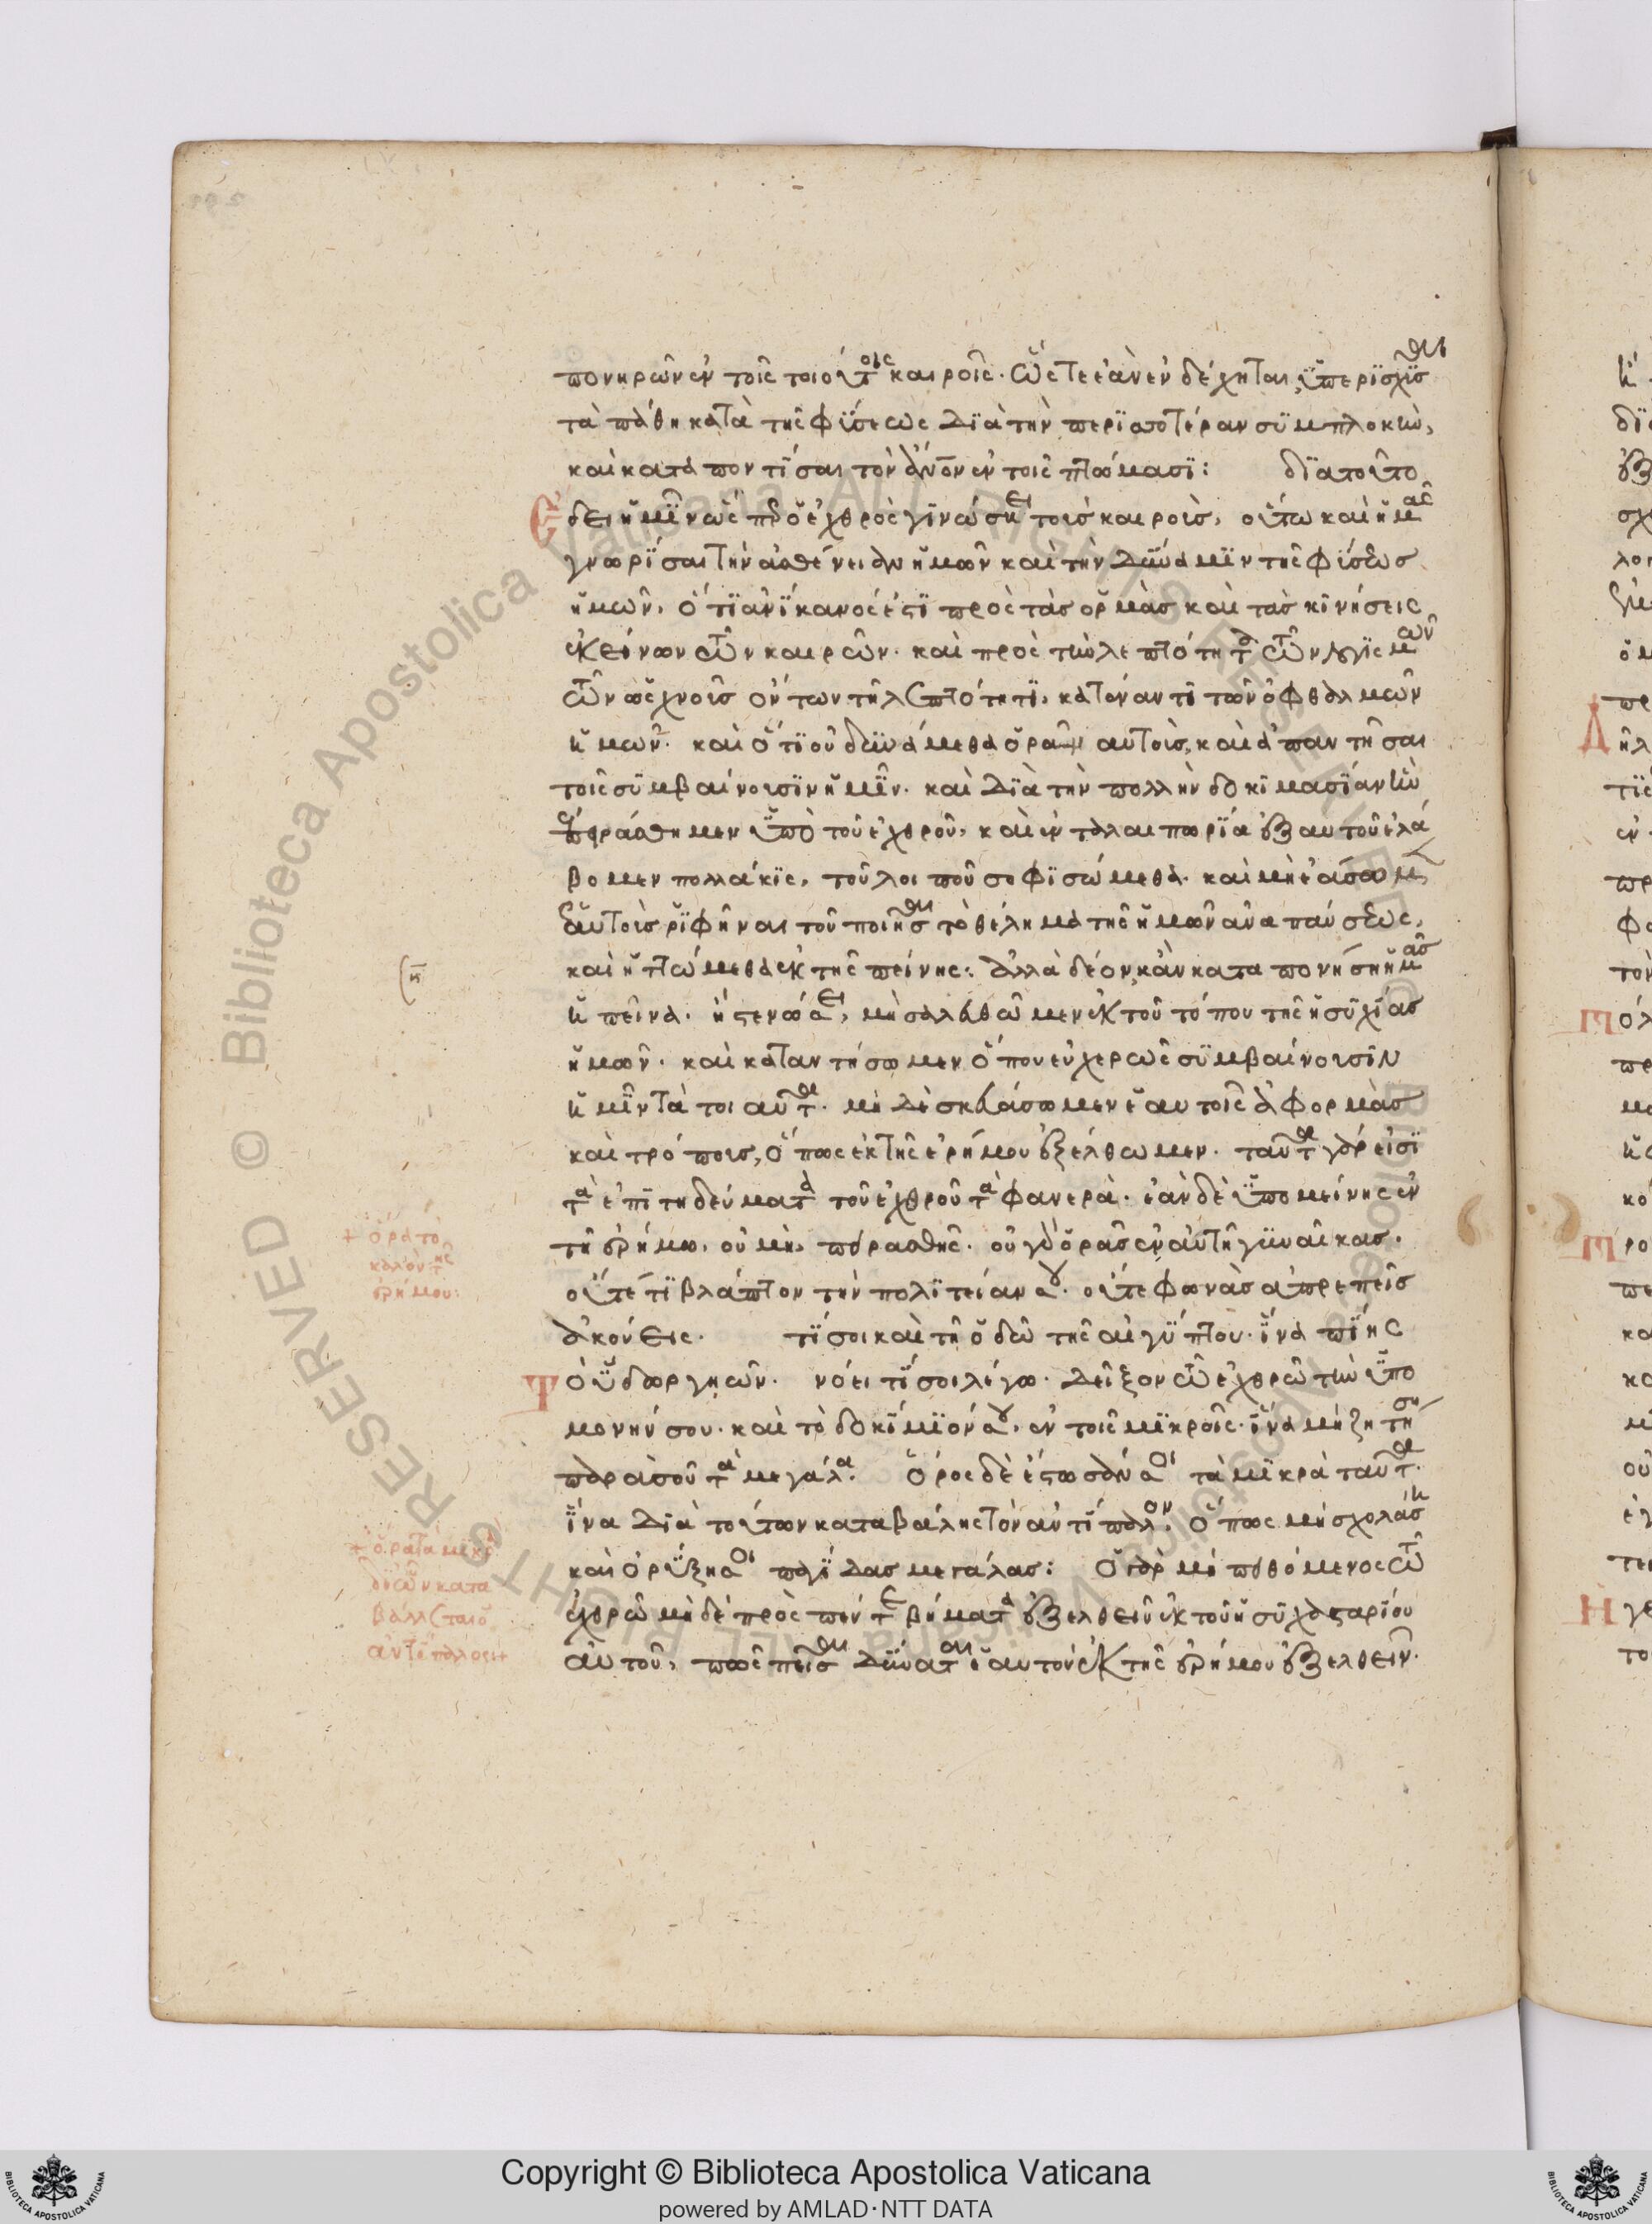 πονηρῶν ἐν τοῖς τοιούτοις καιροῖς. ὥστε ἐὰν ἐνδέχηται, ὑπερισχῦσαι
τὰ πάθη κατὰ τῆς φύσεως διὰ τὴν περισσοτέραν συμπλοκὴν,
καὶ καταποντίσαι τὸν ἄνον ἐν τοῖς πτώμασι: διατοῦτο
δει ἡμῖν ὡς περ ὁ ἐχθρὸς γινώσκει τοὺς καιροὺς, οὕτω καὶ ἡμᾶς
γνωρίσαι τὴν ἀσθένειαν ἡμῶν καὶ τὴν δύναμιν τῆς φύσεως
ἡμῶν, ὅτι ἀνίκανος ἐστι πρὸς τὰς ὁρμὰς καὶ τὰς κινήσεις
ἐκείνων τῶν καιρῶν. καὶ πρὸς τὴν λεπτότητα τῶν λογισμῶν
τῶν ὡς χνοῦς ὄντων τῆ λεπτότητι, κατέναντι τῶν ὀφθαλμῶν
ἡμῶν. καὶ ὅτι οὐ δυνάμεθα ὁρᾶν αὐτοὺς, καὶ ἀπαντῆσαι
τοῖς συμβαίνουσιν ἡμῖν. καὶ διὰ τὴν πολλὴν δοκιμασίαν ἣν
ἐπειράσθημεν ὑπὸ τοῦ ἐχθροῦ, καὶ ἐν ταλαιπωρία ἐξ αυτοῦ ἐλά
βομεν πολλάκις, τοῦ λοιποῦ σοφισώμεθα. καὶ μὴ ἐάσωμεν
ἑαυτοὺς ῥιφῆναι τοῦ ποιῆσαι τὸ θέλημα τῆς ἡμῶν ἀναπαύσεως,
καὶ ἡττώμεθα ἐκ τῆς πείνης: ἀλλὰ δέον κἂν καταπονήση ἡμᾶς
ἡ πεῖνα. ἢ στενώσει, μὴ σαλευθῶμεν ἐκ τοῦ τόπου τῆς ἡσυχίας
ἡμῶν. καὶ καταντήσωμεν ὅπου εὐχερῶς συμβαίνουσιν
ἡμῖν τὰ τοιαῦτα. μὴ δὲ σκευάσωμεν ἑαυτοῖς ἀφορμὰς
καὶ τρόπους, ὅπως ἐκ τῆς ἐρήμου ἐξέλθωμεν. ταῦτα γάρ εἰσι
τὰ ἐπιτηδεύματα τοῦ ἐχθροῦ τὰ φανερὰ. ἐὰν δὲ ὑπομείνης ἐν
τῆ ἐρήμω, οὐ μὴ πειρασθῆς. οὐ γὰρ ὁρᾶς ἐν αὐτῆ γυναῖκας.
οὔτέ τι βλάπτον τὴν πολιτείαν σου. οὔτε φωνὰς ἀπρεπεῖς
ἀκούεις. τί σοι καὶ τῆ ὁδῶ τῆς αἰγύπτου. ἵνα πίης
Τὸ ὕδωρ γηών. νόει τί σοι λέγω. δεῖξον τῶ ἐχθρῶ τὴν ὑπο
μονήν σου. καὶ τὸ δοκίμιόν σου, ἐν τοῖς μικροῖς. ἵνα μὴ ζητήση
παρὰ σοῦ τὰ μεγάλα. ὅρος δὲ ἔστωσάν σοι τὰ μικρὰ ταῦτα.
ἵνα διὰ τούτων καταβάλης τὸν ἀντίπαλον. ὅπως μὴ σχολάση
καὶ ὀρύξη σοι παγίδας μεγάλας: ὁ γὰρ μὴ πειθόμενος τῶ
ἐχθρῶ μὴ δὲ πρὸς πέντε βήματα ἐξελθεῖν ἐκ τοῦ ἡσυχασταρίου
αὐτοῦ, πῶς πεῖσαι δύναται ἑαυτὸν ἐκ τῆς ἐρήμου ἐξελθεῖν.
+ ὅρα τὸ
καλὸν τῆς
ἐρήμου:
+ ὅρα τὰ μικρὰ
δι' ὧν κατα
βάλλεται ὁ
ἀντίπαλος:+